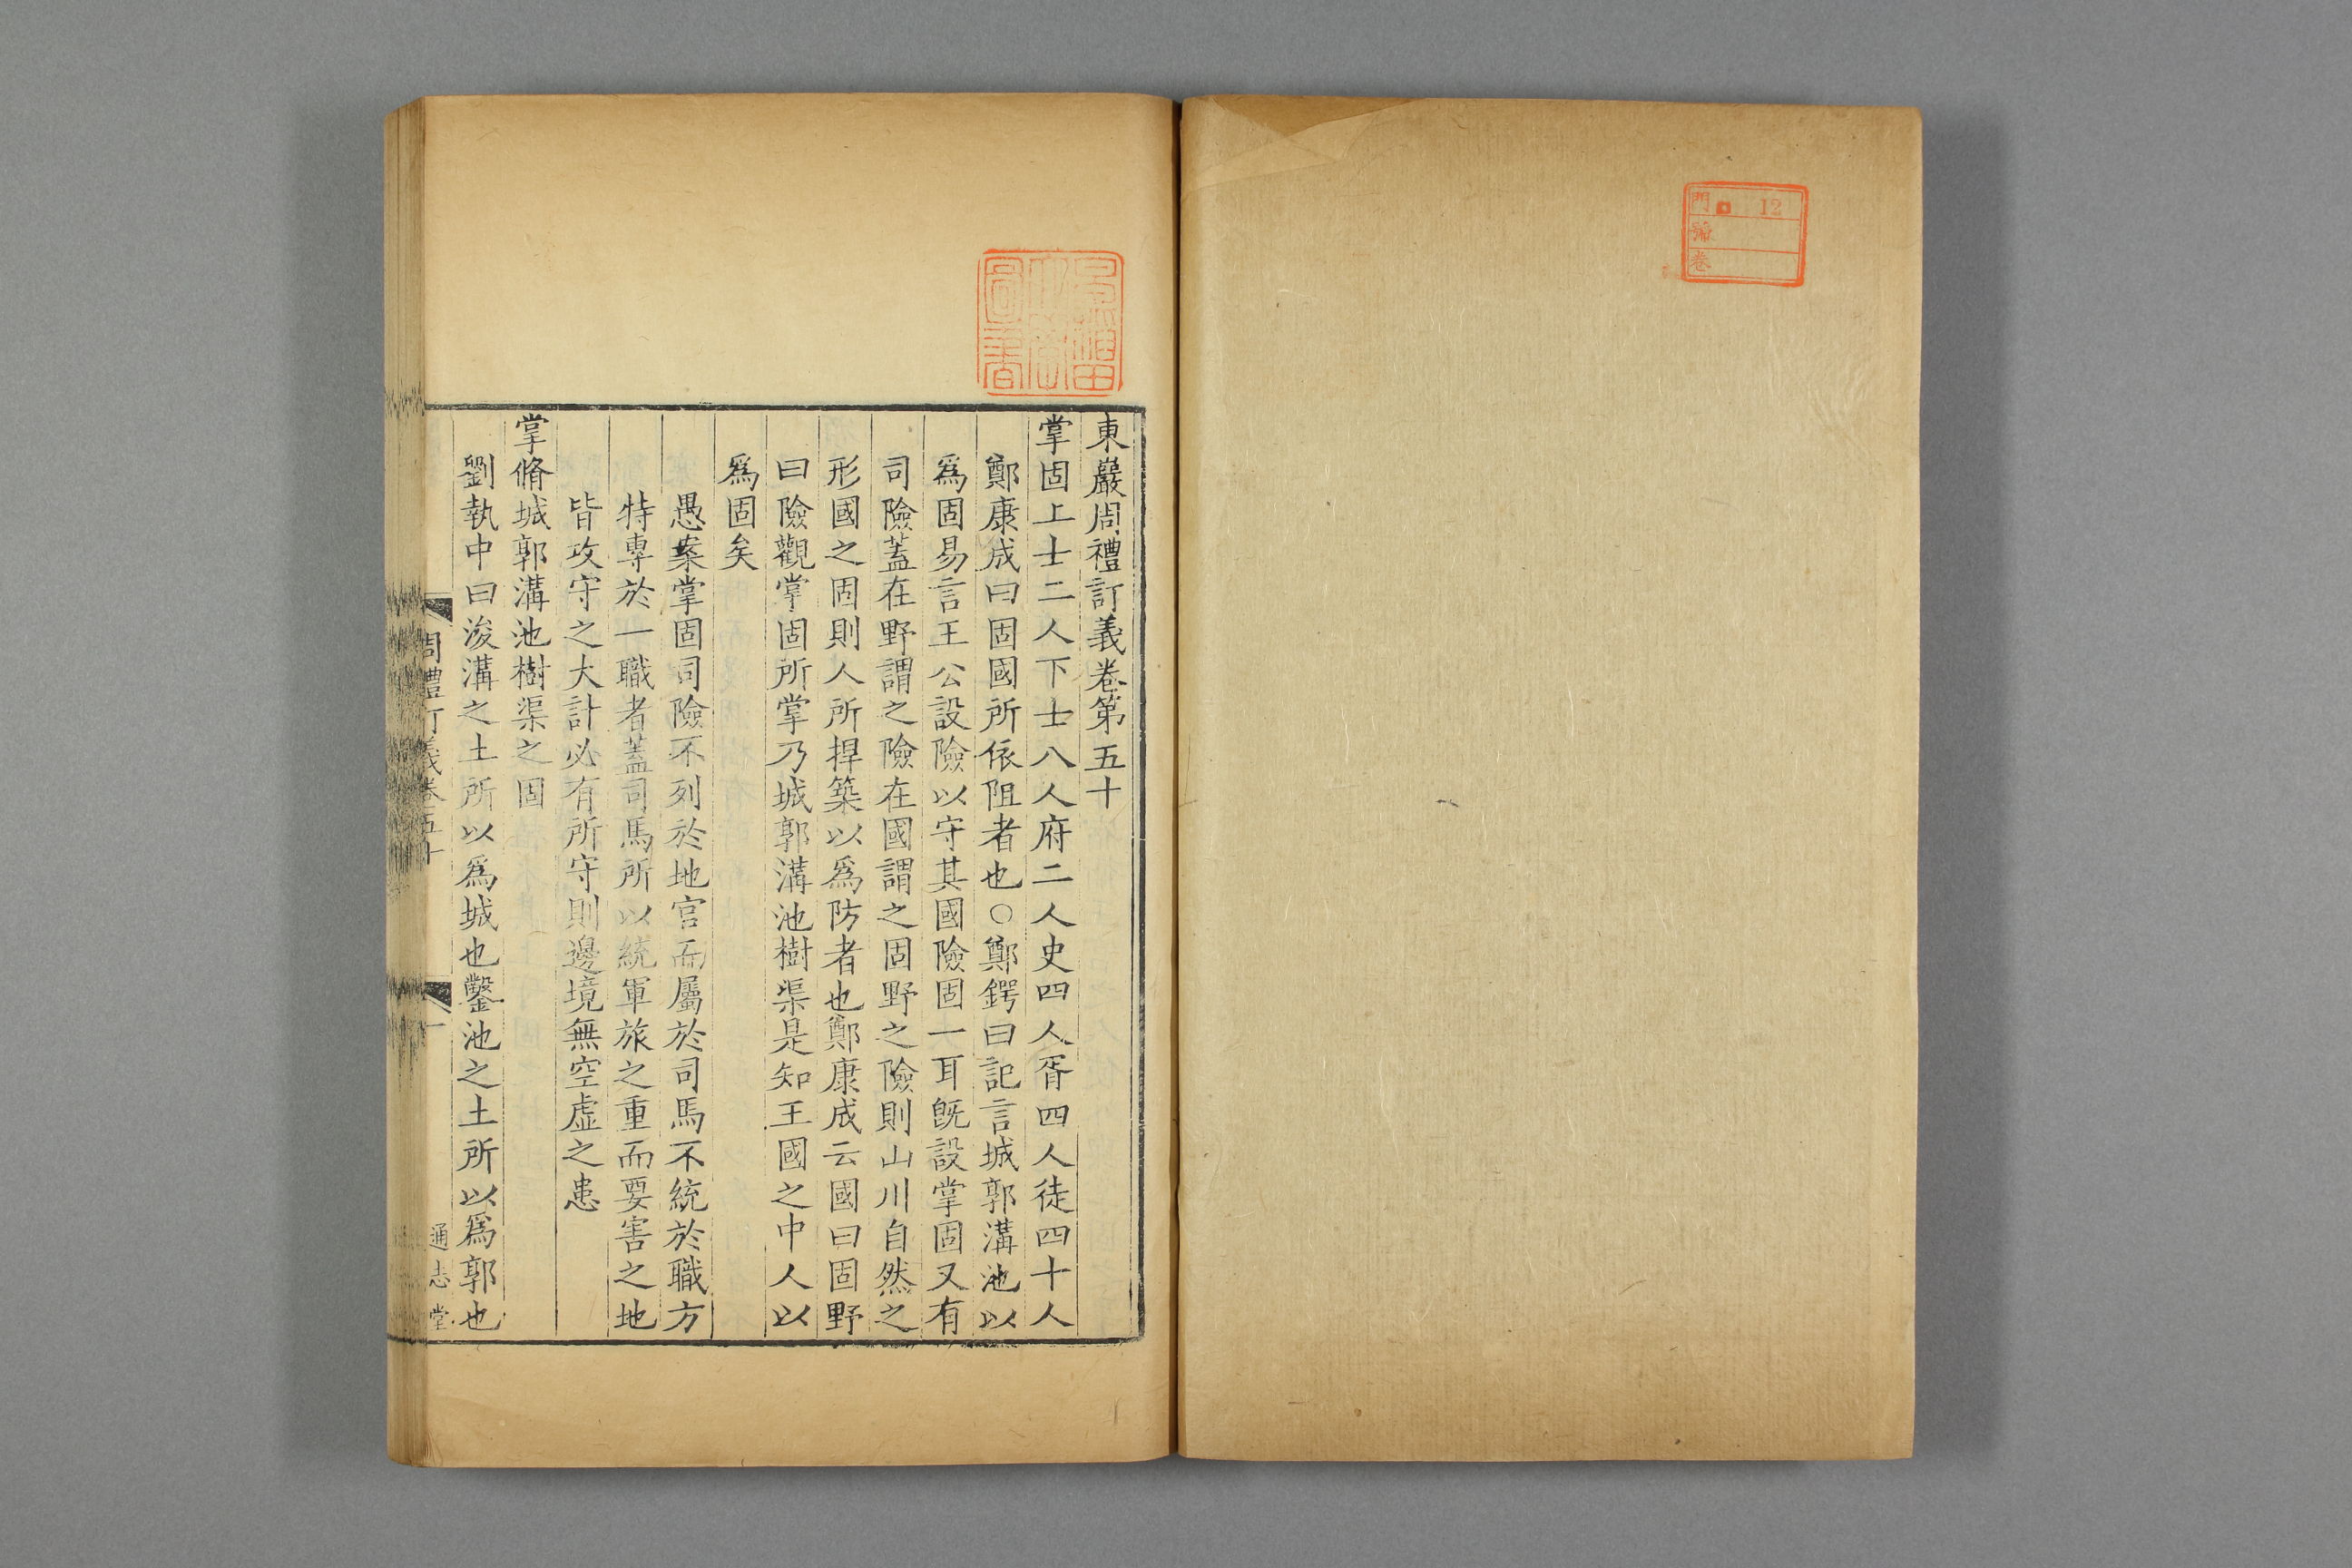 門 12
號
卷
東巖周禮訂義卷第五十
掌固上士二人下士八人府二人史四人胥四人徒四十人
鄭康成曰固國所依阻者也○鄭鍔曰記言城郭溝池以
爲固易言王公設險以守其國險固一耳旣設掌固又有
司險蓋在野謂之險在國謂之固野之險則山川自然之
形國之固則人所捍築以爲防者也鄭康成云國曰固野
曰險觀掌固所掌乃城郭溝池樹渠是知王國之中人以
爲固矣
愚案掌固司險不列於地官而屬於司馬不統於職方
特專於一職者蓋司馬所以統軍旅之重而要害之地
皆攻守之大計必有所守則邊境無空虛之患
掌脩城郭溝池樹渠之固
劉執中曰浚溝之土所以爲城也鑿池之土所以爲郭也
周禮訂義卷五十 一 通志堂